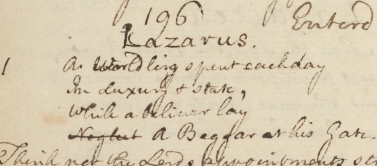 196
Enterd
Lazarus.
1 A Worldling spent each day
In Luxury & state,
While a believer lay
Neglect A Beggar at his Gate.
Think not the Lords appointments